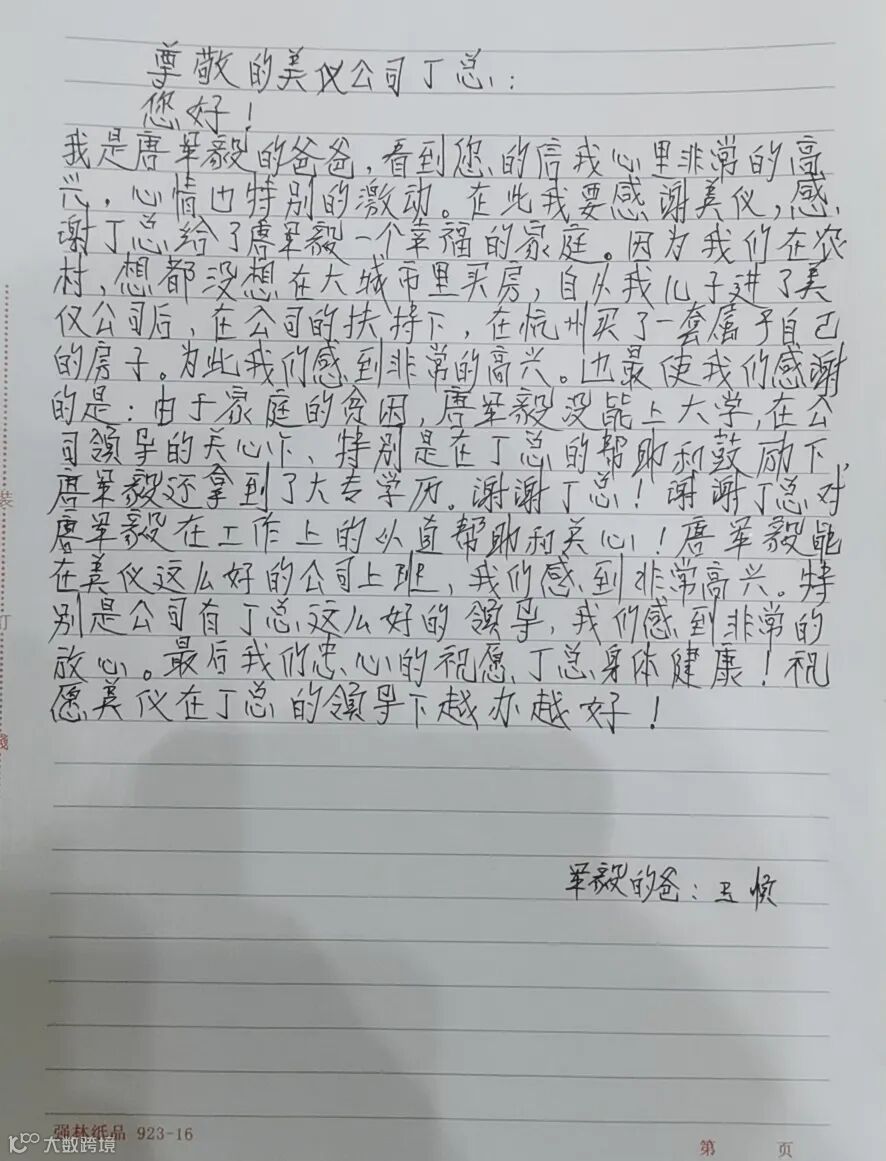 尊敬的美仪公司丁总：
您好！
我是唐军毅的爸爸，看到您的信我心里非常的高
兴，心情也特别的激动。在此我要感谢美仪，感
谢丁总给了唐军毅一个幸福的家庭。因为我们在农
村，想都没想在大城市里买房，自从我儿子进了美
仪公司后，在公司的扶持下，在杭州买了一套属于自己
的房子。为此我们感到非常的高兴。也最使我们感谢
的是：由于家庭的贫困，唐军毅没能上大学，在公
司领导的关心下、特别是在丁总的帮助和鼓励下，
唐军毅还拿到了大专学历。谢谢丁总！谢谢丁总对
唐军毅在工作上的一直帮助和关心！唐军毅能
在美仪这么好的公司上班，我们感到非常高兴。特
别是公司有丁总这么好的领导，我们感到非常的
放心。最后我们忠心的祝愿丁总身体健康！祝
愿美仪在丁总的领导下越办越好！
军毅的爸：
装
订
线
强林纸品 923-16
第 页
大数跨境